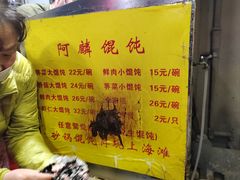 阿麟馄饨
荠菜大馄饨 22元/碗 鲜肉小馄饨 15元/碗
大馄饨 24元/碗 荠菜小馄饨 15元/碗
鲜肉大馄饨 26元/碗 26元/碗
仁大馄饨 32元/碗 2元/只
任意 馄饨)
砂锅馄饨 上海滩